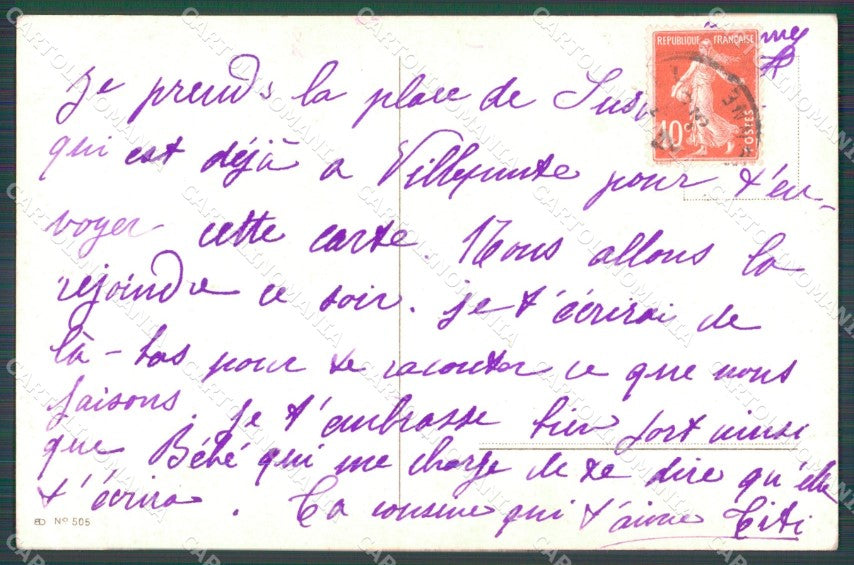 Je prends la place de
qui est déjà a Villepinte pour t'en-
voyer cette carte. Nous allons la
rejoindre ce soir. Je t'écrirai de
là-bas pour te raconter ce que nous
faisons. Je t'embrasse bien fort ainsi
que Bébé qui me charge de te dire qu'elle
t'écrira. Ta cousine qui t'aime Titi
REPUBLIQUE FRANÇAISE
10
POSTES
Nº 505
CARTOLINOMANIA